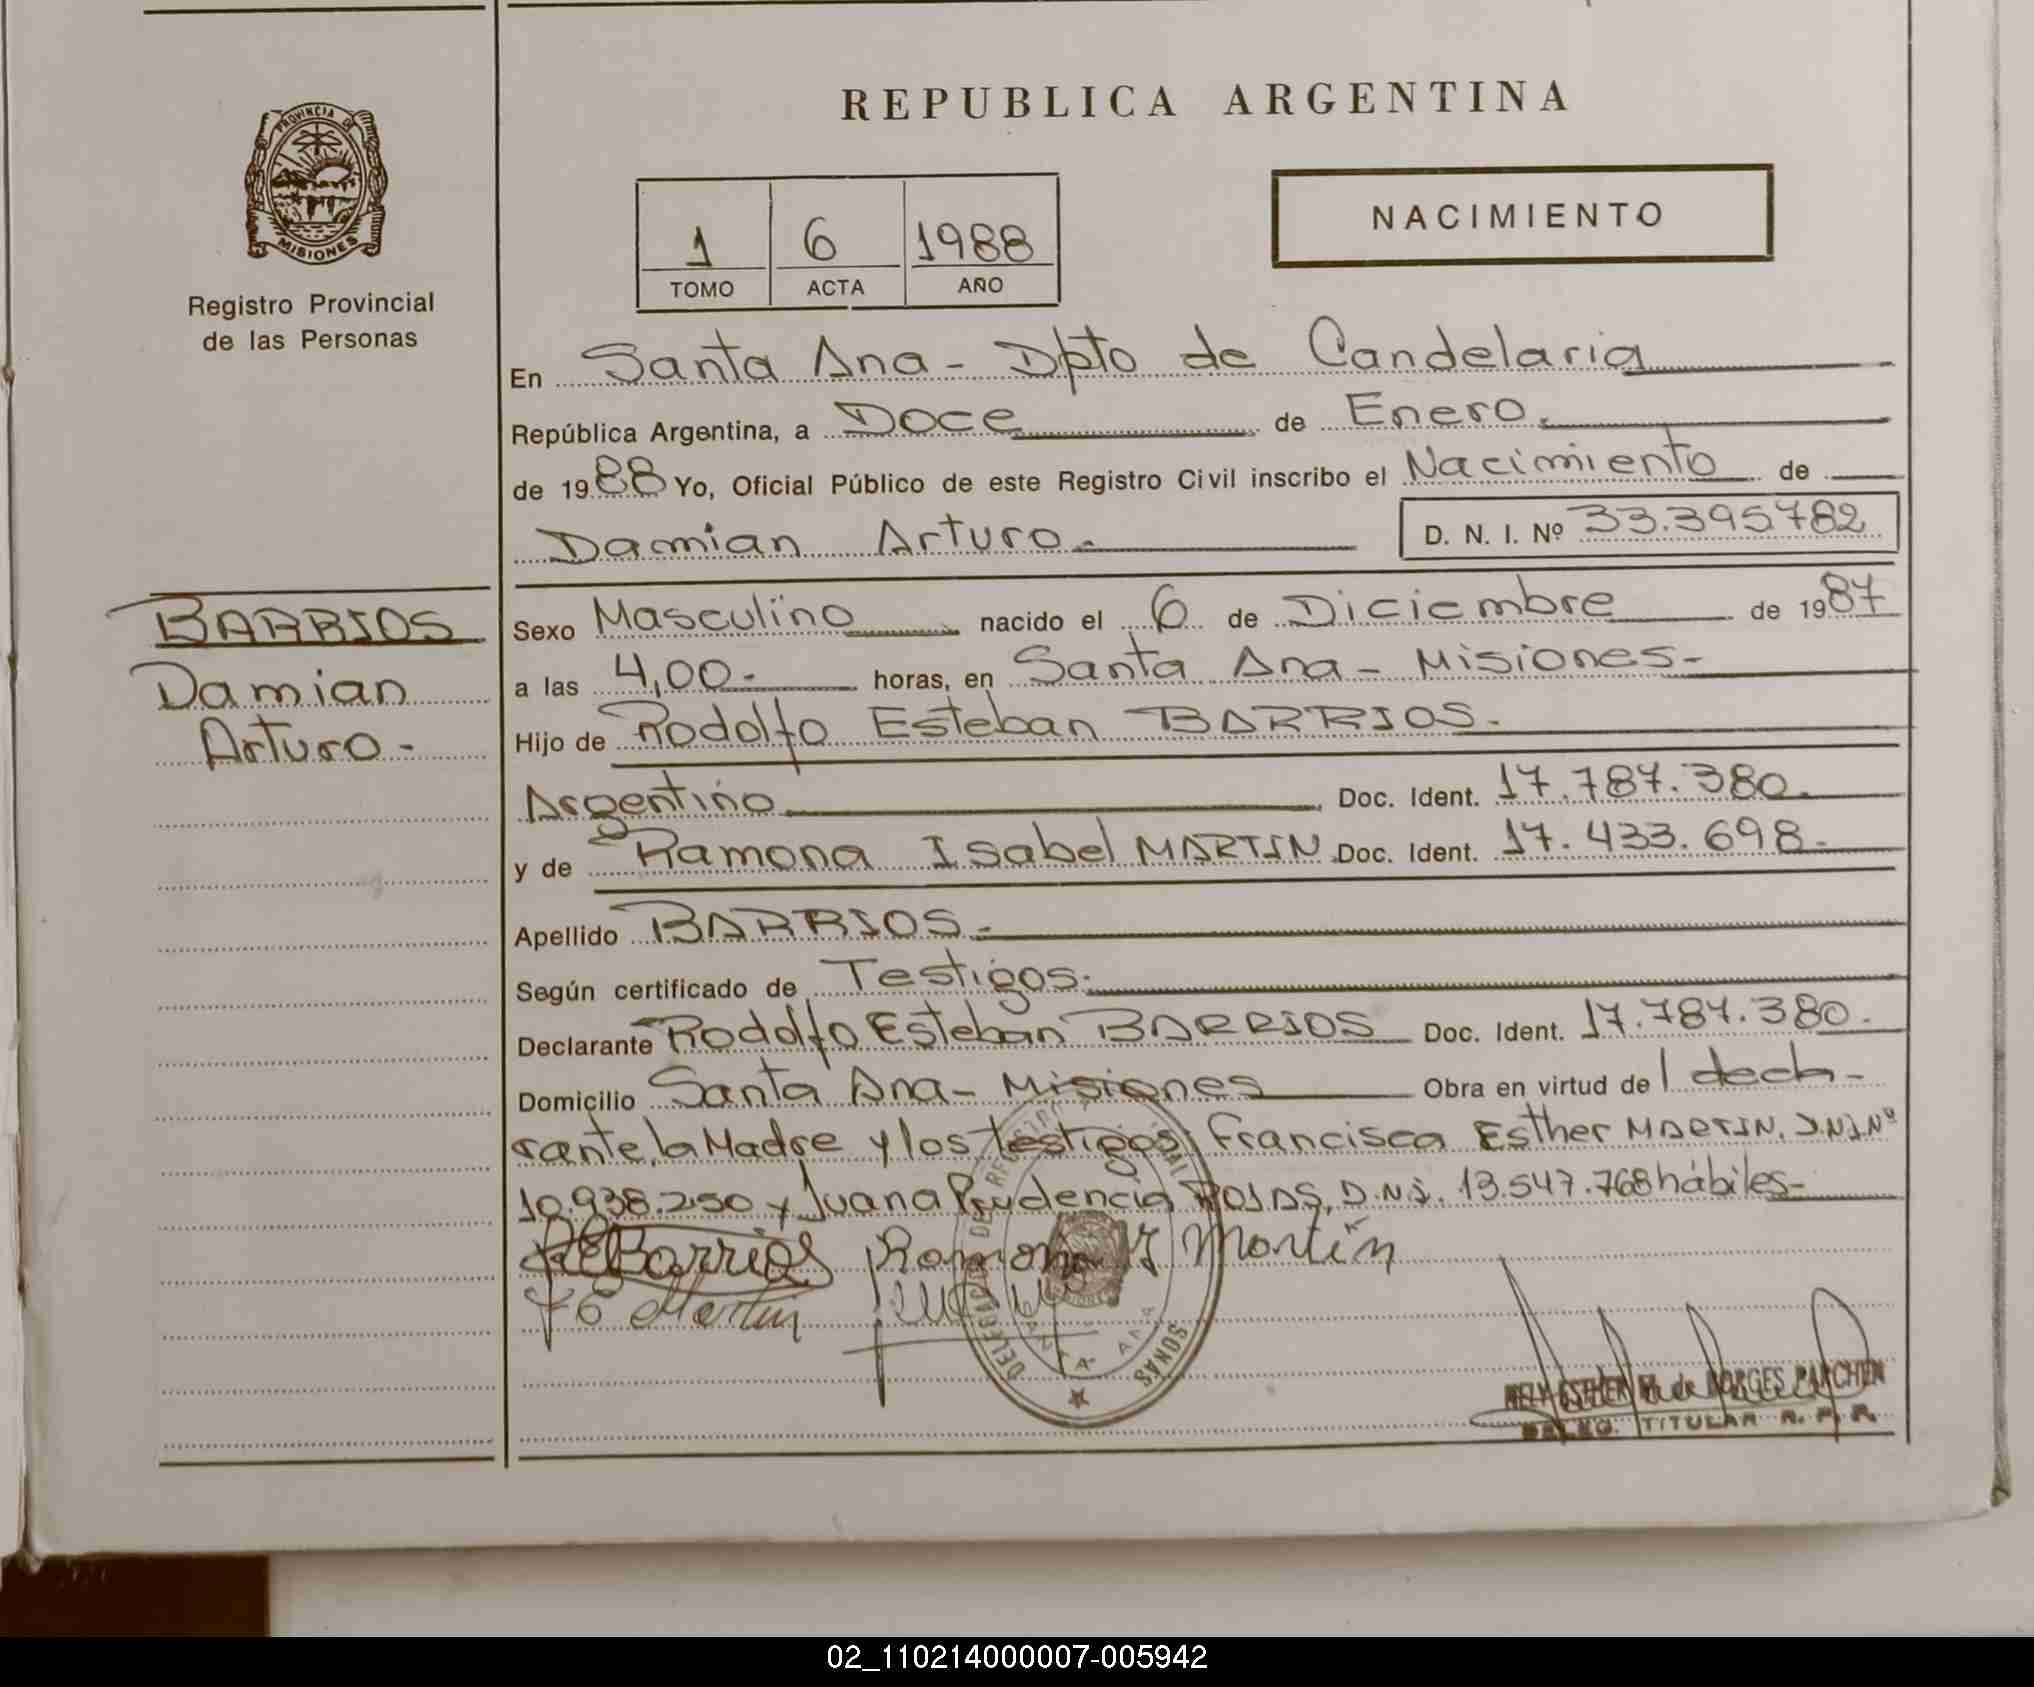 REPUBLICA ARGENTINA
PROVINCIA DE
MISIONES
Registro Provincial
de las Personas
1 6 1988
TOMO ACTA AÑO
NACIMIENTO
En Santa Ana - Dpto de Candelaria
República Argentina, a Doce de Enero.
de 1988 Yo, Oficial Público de este Registro Civil inscribo el Nacimiento de
Damian Arturo.- D. N. I. Nº 33.395.782
BARRIOS
Damian
Arturo.-
Sexo Masculino nacido el 6 de Diciembre de 1987
a las 4,00.- horas, en Santa Ana - Misiones.-
Hijo de Rodolfo Esteban BARRIOS.-
Argentino Doc. Ident. 17.787.380.
y de Ramona Isabel MARTIN Doc. Ident. 17.433.698.-
Apellido BARRIOS.-
Según certificado de Testigos.
Declarante Rodolfo Esteban BARRIOS Doc. Ident. 17.787.380.
Domicilio Santa Ana - Misiones Obra en virtud de l decla-
rante, la Madre y los testigos Francisca Esther MARTIN, D.N.I Nº
10.938.250 y Juana Prudencia ROJAS, D.N.I. 13.547.768 hábiles.-
REBarrios Ramona I Martin
F E Martin
SANTA ANA
ESTHER de BORGES PARCHEN
DELEG. TITULAR R. P. P.
02_110214000007-005942